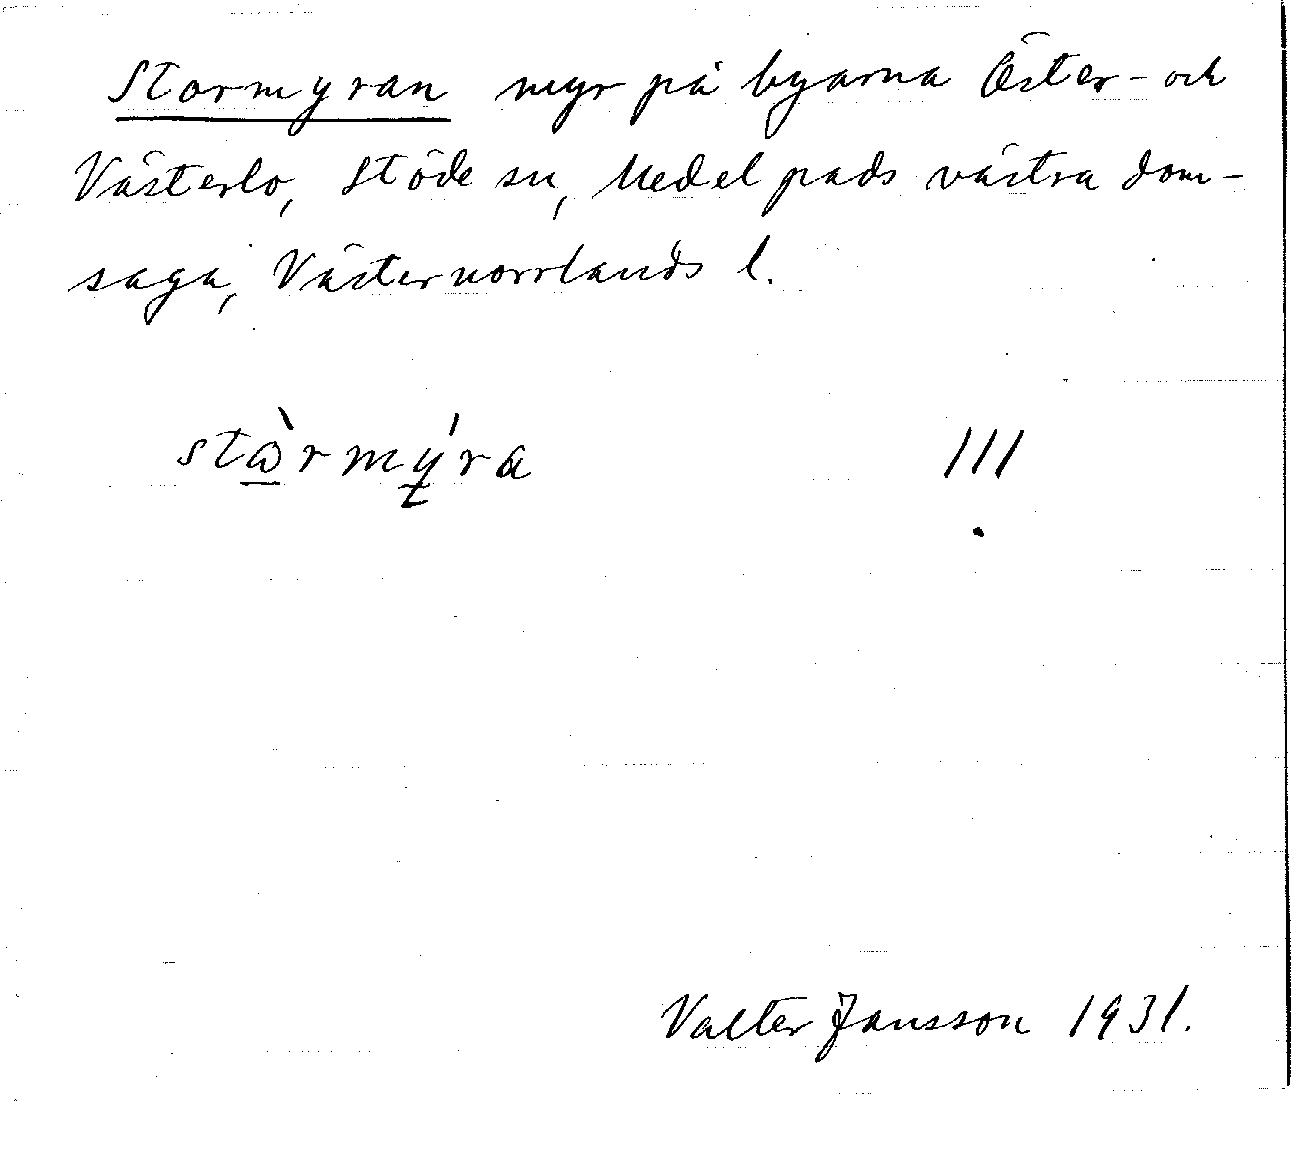 Stormyran myr på byarna Öster- och
Västerlo, Stöde sn, Medelpads västra dom-
saga, Västernorrlands l.
stɷ̀rmýra III
Valter Jansson 1931.